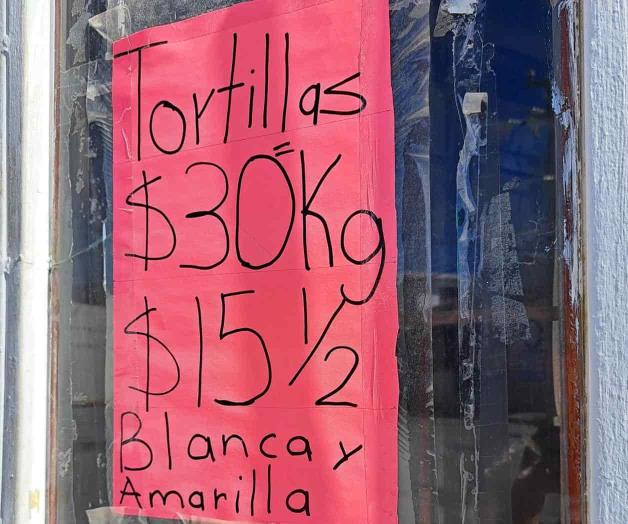 Tortillas
$30= Kg
$15 1/2
Blanca y
Amarilla